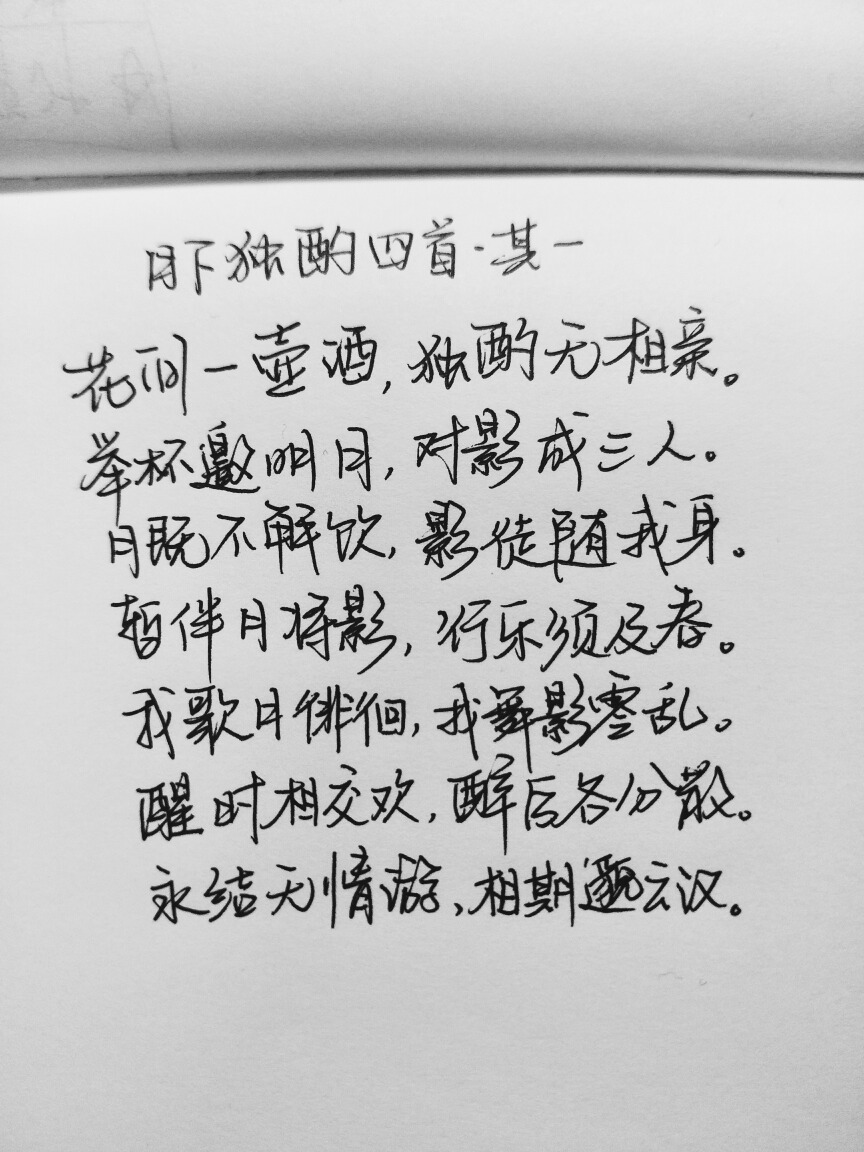 月下独酌四首·其一
花间一壶酒,独酌无相亲。
举杯邀明月,对影成三人。
月既不解饮,影徒随我身。
暂伴月将影,行乐须及春。
我歌月徘徊,我舞影零乱。
醒时相交欢,醉后各分散。
永结无情游,相期邈云汉。